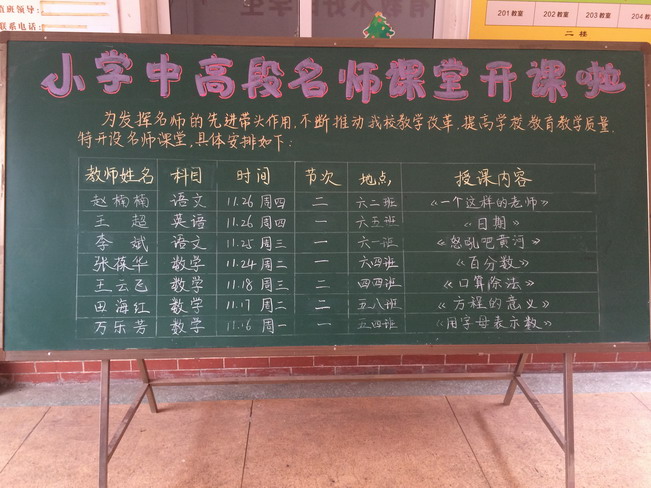 值班领导:
联系电话:
201教室 202教室 203教室 204教
二楼
小学中高段名师课堂开课啦
为发挥名师的先进带头作用,不断推动我校教学改革,提高学校教育教学质量,
特开设名师课堂,具体安排如下:
教师姓名 科目 时间 节次 地点 授课内容
赵楠楠 语文 11.26 周四 二 六二班 《一个这样的老师》
王超 英语 11.26 周四 一 六五班 《日期》
李斌 语文 11.25 周三 一 六一班 《怒吼吧黄河》
张葆华 数学 11.24 周二 一 六四班 《百分数》
王云飞 数学 11.18 周三 二 四四班 《口算除法》
田海红 数学 11.17 周二 二 五八班 《方程的意义》
万乐芳 数学 11.16 周一 一 五四班 《用字母表示数》